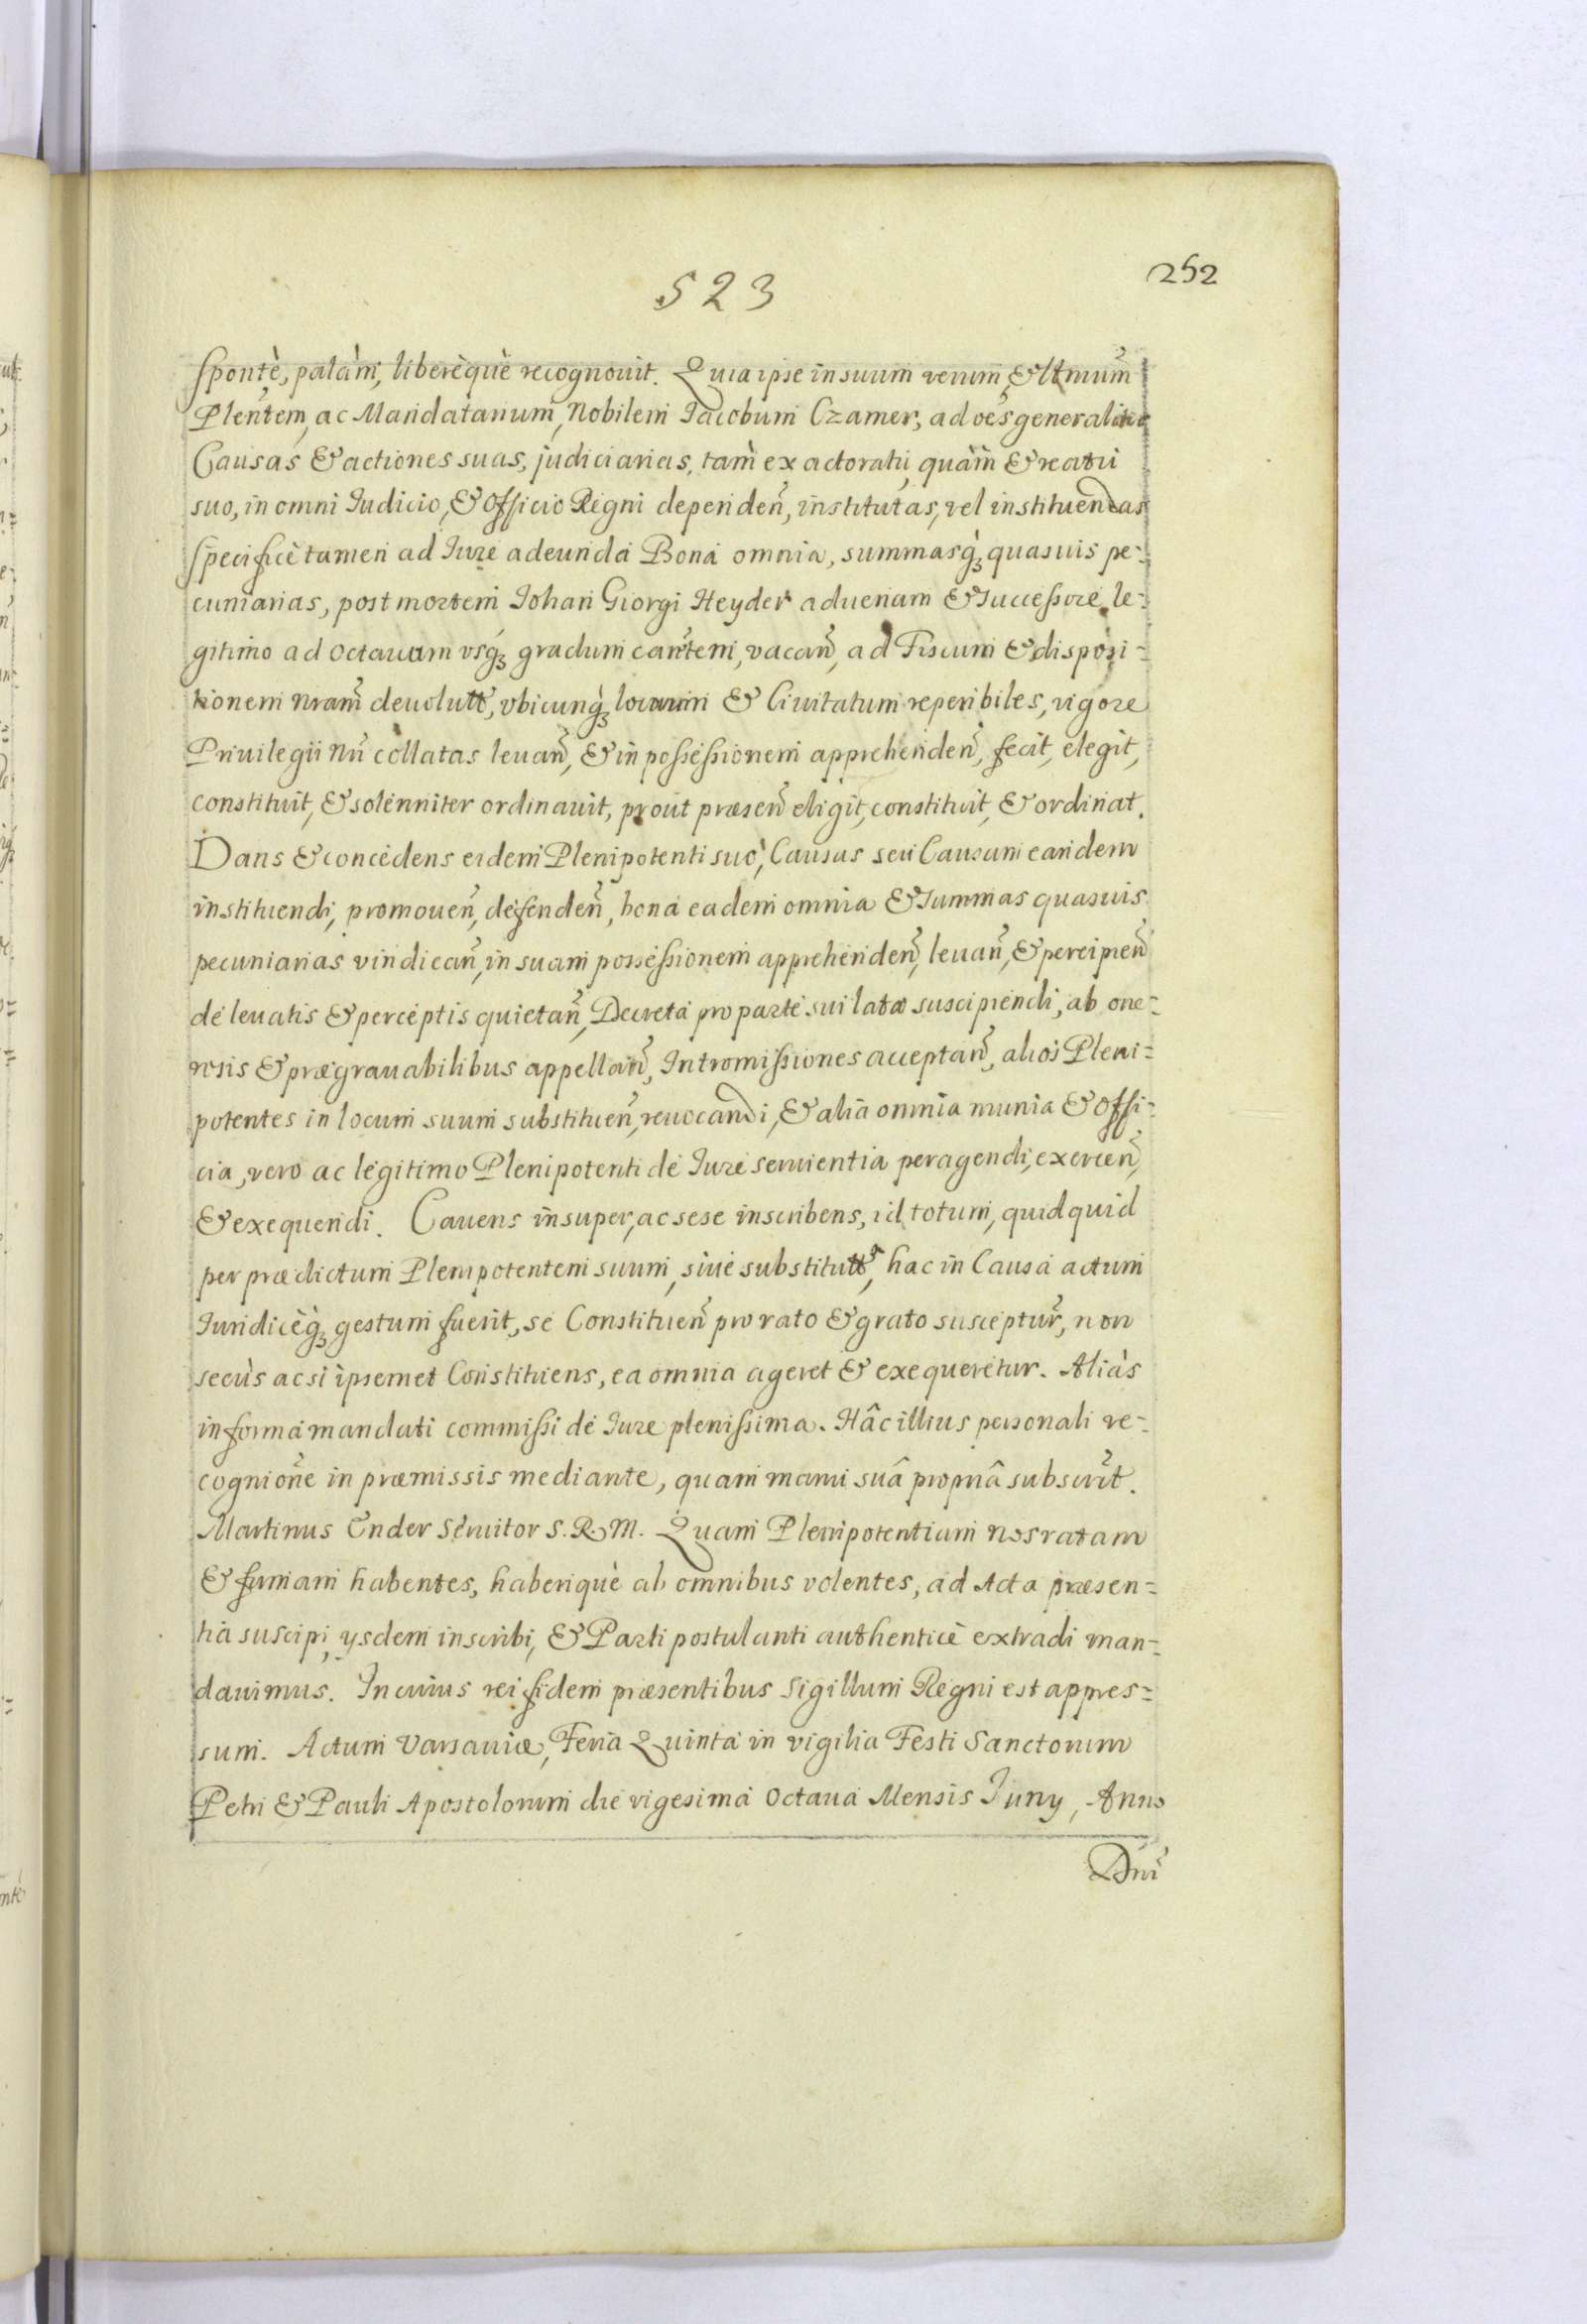 523
252
spontè, palàm, liberèquè recognouit. Quia ipse in suum verum, & ltmum̃
Plentẽm, ac Mandatarium, Nobilem Iacobum Czamer, ad oẽs generaliter
Causas & actiones suas, judiciarias, tam ex actoratu, quàm & reatu
suo, in omni Iudicio, & Officio Regni dependeñ, institutas, vel instituendas
specificè tamen ad Iure adeunda Bona omnia, summasq́ꝫ quasuis pe=
cuniarias, post mortem Johan Giorgi Heyder aduenam & successore le=
gitimo ad octauum vsq́ꝫ gradum careñtem, vacañ, ad Fiscum & disposi=
tionem nram̃ deuolutt, vbicunq́ꝫ locorum & Ciuitatum reperibiles, vigore
Priuilegii nr̃i collatas leuañ, & in possessionem apprehendeñ, fecit, elegit,
constituit, & solenniter ordinauit, prout præseñ eligit, constituit, & ordinat.
Dans & concedens eidem Plenipotenti suo, Causas seu Causam eandem
instituendi, promoueñ, defendeñ, bona eadem omnia & summas quasuis
pecuniarias vindicañ, in suam possessionem apprehendeñ, leuañ, & percipieñ
de leuatis & perceptis quietañ, Decreta pro parte sui lata suscipiendi, ab one=
rosis & prægrauabilibus appellañ, Intromissiones acceptañ, alios Pleni=
potentes in locum suum substitueñ, reuocandi, & alia omnia munia & offi=
cia, vero ac legitimo Plenipotenti de Iure seruientia peragendi, exerceñ,
& exequendi. Cauens insuper, ac sese inscribens, id totum, quidquid
per prædictum Plenipotentem suum, siue substitutt, hac in Causa actum
Iuridicèq́ꝫ gestum fuerit, se Constitueñ pro rato & grato susceptur̃, non
secùs ac si ipsemet Constituens, ea omnia ageret & exequeretur. Aliàs
in forma mandati commissi de Iure plenissima. Hâc illius personali re=
cognioñe in præmissis mediante, quam manu suâ propriâ subscrĩt.
Martinus Ender Seruitor S. R. M. Quam Plenipotentiam nos ratam
& firmam habentes, haberiquè ab omnibus volentes, ad Acta præsen=
tia suscipi, ysdem inscribi, & Parti postulanti authenticè extradi man=
dauimus. In cuius rei fidem præsentibus Sigillum Regni est appres=
sum. Actum Varsauiæ, Feria Quinta in vigilia Festi Sanctorum
Petri & Pauli Apostolorum die vigesima Octaua Mensis Iuny, Anno
Dnĩ